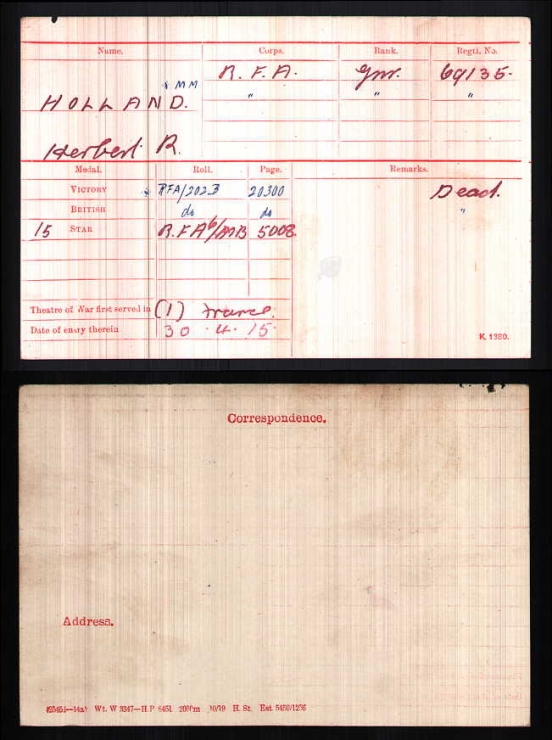 Name. Corps. Rank. Regtl. No.
R. F. A. Gnr. 69135.
* MM " " "
HOLLAND.
Herbert R.
Medal. Roll. Page. Remarks.
VICTORY * RFA/202B 20300 Dead.
BRITISH do do "
15 STAR R.F.A 5008.
Theatre of War first served in (1) France.
Date of entry therein 30.4.15.
K. 1380.
Correspondence.
Address.
Wt. W 3347—H.P 200m 10/19 H. St.